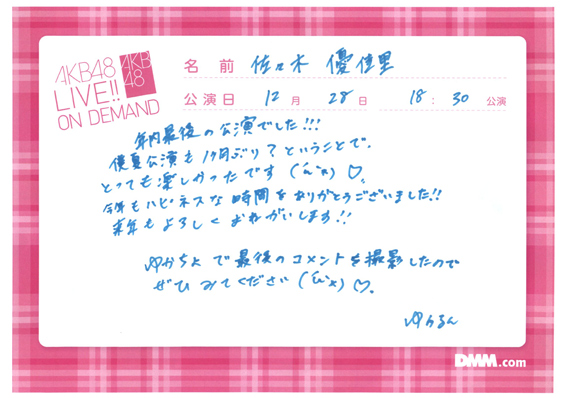 AKB48
LIVE!!
ON DEMAND
AKB
48
名前 佐々木 優佳里
公演日 12月 28日 18:30 公演
年内最後の公演でした!!!
僕夏公演も1ヶ月ぶり?ということで、
とっても楽しかったです(ˊᵕˋ)♡、
今年もハピネスな時間をありがとうございました!!
来年もよろしくおねがいします!!
ゆかちよで最後のコメントを撮影したので
ぜひみてください(ˊᵕˋ)♡。
ゆかるん
DMM.com